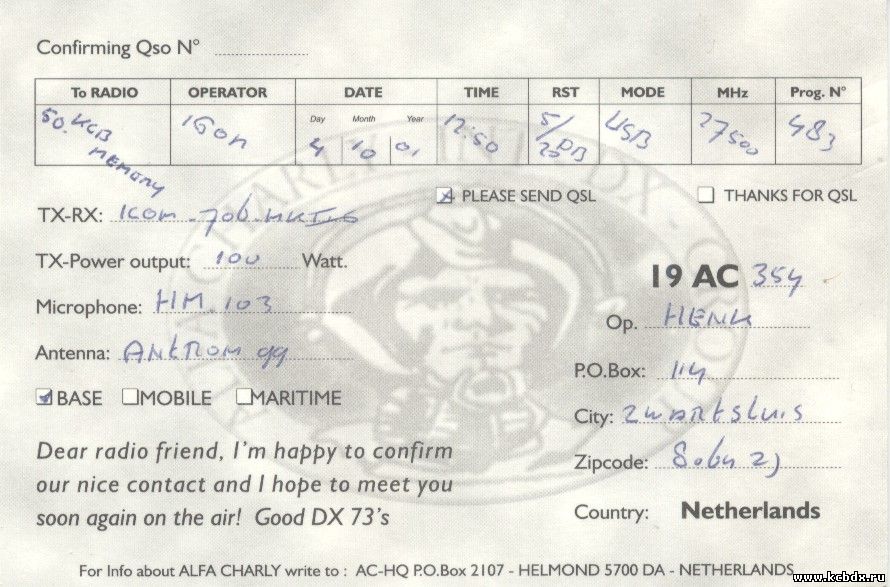 Confirming Qso N°
To RADIO OPERATOR DATE TIME RST MODE MHz Prog. N°
Day Month Year
50. KCB MEMORY IGOn 4 10 01 12:50 5/ 25DB USB 27500 483
PLEASE SEND QSL THANKS FOR QSL
TX-RX: ICOM - 706. MKII
TX-Power output: 100 Watt.
Microphone: HM. 103
Antenna: ANTROM 99
BASE MOBILE MARITIME
19 AC 354
Op. HENK
P.O.Box: 114
City: ZWARTSLUIS
Zipcode:
Country: Netherlands
Dear radio friend, I'm happy to confirm
our nice contact and I hope to meet you
soon again on the air! Good DX 73's
For Info about ALFA CHARLY write to : AC-HQ P.O.Box 2107 - HELMOND 5700 DA - NETHERLANDS
www.kcbdx.ru